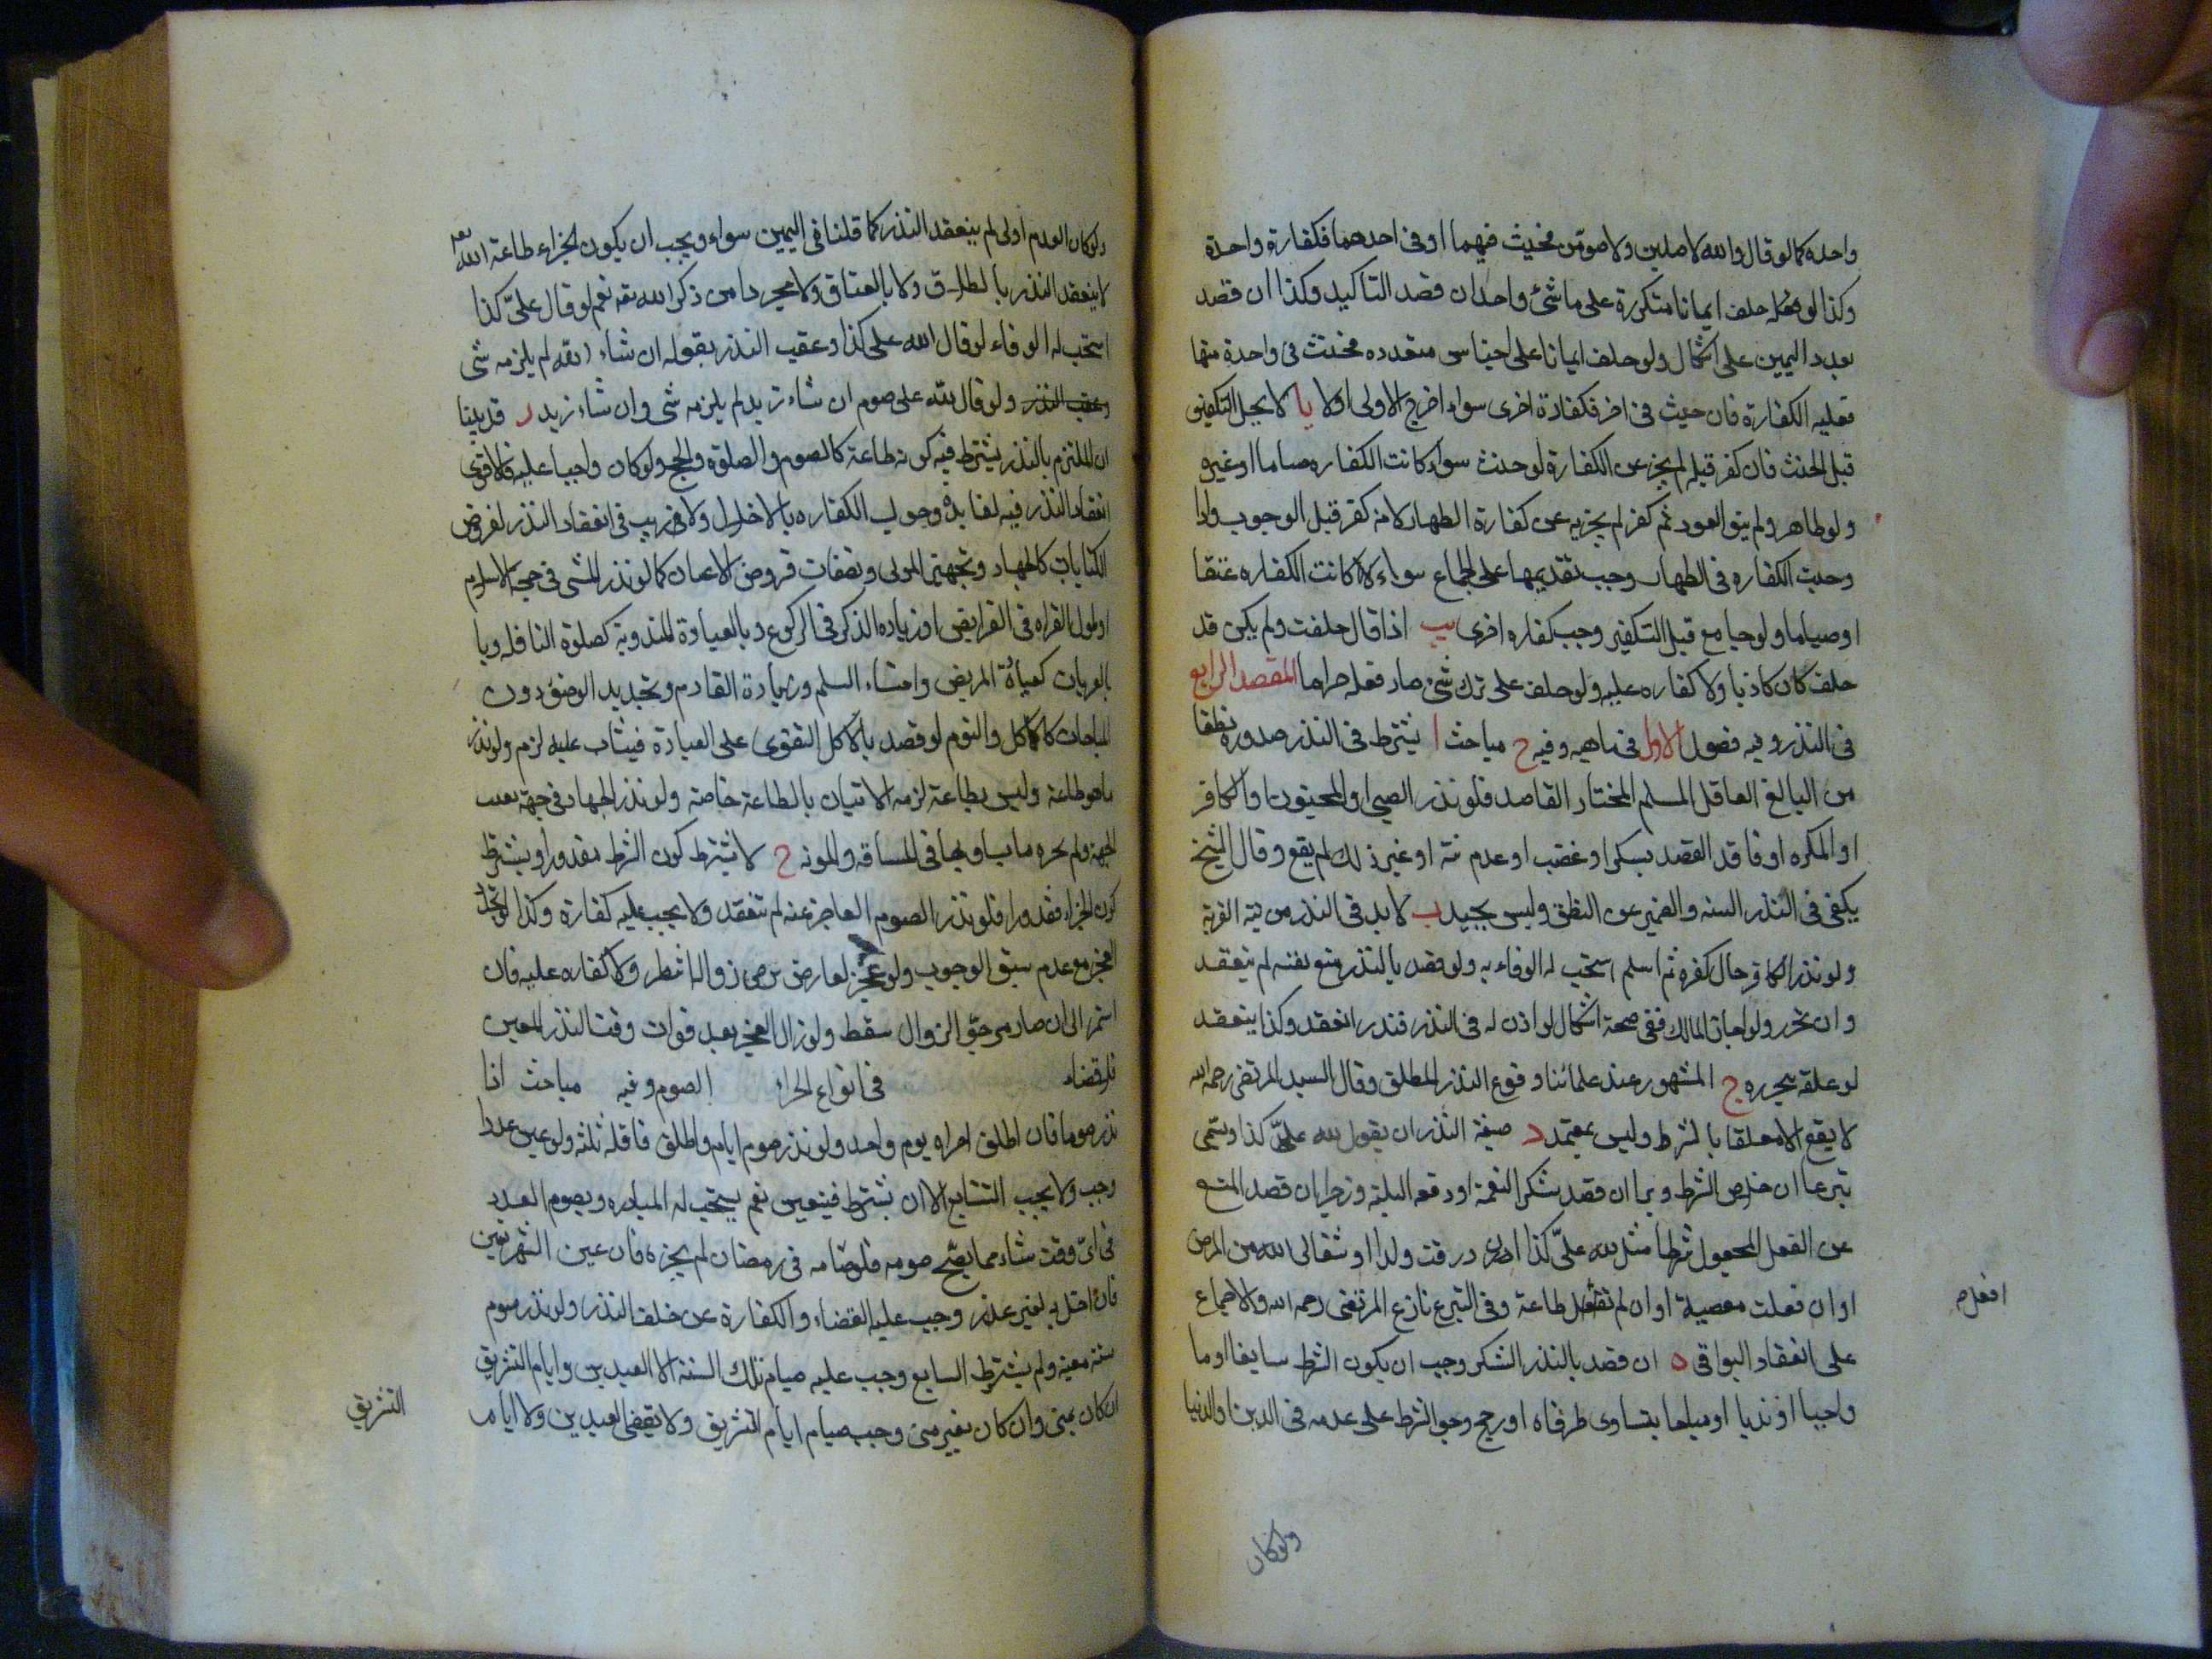 واحدة كما لو قال والله لاصلين ولاصومن فحنث فيهما او فى احدهما فكفارة واحدة
وكذا لو حلف ايمانا متكررة على ما شئ واحد ان قصد التاكيد وكذا ان قصد
تعدد اليمين على اشكال ولو حلف ايمانا على اجناس متعدده فحنث فى واحدة منها
فعليه الكفارة فان حنث فى اخر فكفارة اخرى سواء اخرج الاولى اولا يا لا يجبل التكفير
قبل الحنث فان كفر قبله لم يجز عن الكفارة لو حنث سواء كانت الكفاره صياما او غيره
ولو ظاهر ولم ينو العود ثم كفر لم يجزيه عن كفارة الظهار لانه كفر قبل الوجوب واذا
وجبت الكفاره فى الظهار وجب تقديمها على الجماع سواء كانت الكفاره عتقا
او صياما ولو جامع قبل التكفير وجب كفاره اخرى يب اذا قال حلفت ولم يكن قد
حلف كان كاذبا ولا كفاره عليه ولو حلف على ترك شئ صار فعله حراما المقصد الرابع
فى النذر وفيه فصول الاول فى ماهيه وفيه ح مباحث ا يشترط فى النذر صدوره نطقا
من البالغ العاقل المسلم المختار القاصد فلو نذر الصبى او المجنون او الكافر
او المكره او فاقد القصد بسكر او غضب او عدم نية او غير ذلك لم يقع وقال الشيخ
يكفى فى النذر النيه والضمير عن النطق وليس بجيد ب لا بد فى النذر من نية القربة
ولو نذر الكافر حال كفره ثم اسلم استحب له الوفاء به ولو قصد بالنذر منع نفسه لم ينعقد
وان تحرر ولو اجاز المالك ففى صحته اشكال لو اذن له فى النذر فنذر انعقد وكذا ينعقد
لو علقه بتحرره ج المشهور عند علمائنا وقوع النذر المطلق وقال السيد المرتضى رحمه الله
لا يقع الا معلقا بالشرط وليس بمعتمد د صيغة النذر ان يقول لله علىّ كذا ويسمى
تبرعا ان خلى عن الشرط وبرا ان قصد شكر النعمة او دفع البلية وزجرا ان قصد المنع
عن الفعل المجعول شرطا مثل لله علىّ كذا ان رزقت ولدا او شفانى الله من المرض
او ان فعلت معصية او ان لم افعل طاعة وفى التبرع نازع المرتضى رحمه الله والاجماع
افعل صح
على انعقاد البواقى ه ان قصد بالنذر الشكر وجب ان يكون الشرط سايغا اوما
واجبا او ندبا او مباحا يتساوى طرفاه او رجح وجود الشرط على عدمه فى الدين او الدنيا
ولو كان
ولو كان العدم اولى لم ينعقد النذر كما قلنا فى اليمين سواء ويجب ان يكون الجزاء طاعة الله تعه
لا ينعقد النذر بالطلاق ولا بالعتاق ولا مجردا من ذكر الله تعه نعم لو قال علىّ كذا
استحب له الوفاء لو قال الله على كذا وعقب النذر بقوله ان شاء الله لم يلزمه شى
وعقب النذر ولو قال لله على صوم ان شاء زيد لم يلزمه شى وان شاء زيد ر قد بينا
ان الملتزم بالنذر يشترط فيه كونه طاعة كالصوم والصلوة والحج ولو كان واجبا عليه فالاقوى
انعقاد النذر فيه لفايدة وجوب الكفاره بالاخلال ولا فى ريب فى انعقاد النذر لفروض
الكفايات كالجهاد وتجهيز الموتى وصفات فروض الاعيان كما لو نذر المشى فى حجة الاسلام
او طول القراه فى الفرايض او زيادة الذكر فى الركوع وبالعبادة المندوبة كصلوة النافله وبا
بالقربات كعيادة المريض وافشاء السلم وزيارة القادم وتجديد الوضوء دون
المباحات كالاكل والنوم لو قصد بالاكل التقوى على العبادة فيثاب عليه لزم ولو نذر
ما هو طاعة وليس بطاعة لزمه الاتيان بالطاعة خاصة ولو نذر الجهاد فى جهة تعينت
الجهة ولم يجزه ما يساويها فى المسافة والمونه ح لا يشترط كون الشرط مقدورا ويشترط
كون الجزاء مقدورا فلو نذر الصوم العاجز عنه لم تنعقد ولا يجب عليه كفارة وكذا لو تجدد
العجز مع عدم سبق الوجوب ولو عجز لعارض يرجى زواله انتظر ولا كفاره عليه فان
استمر الى ان صار مرجو الزوال سقط ولو زال العجز بعد فوات وقت النذر المعين
فلا قضاء فى انواع الجزاء الصوم وفيه مباحث اذا
نذر صوما فان اطلق اجزاه يوم واحد ولو نذر صوم ايام واطلق فاقله ثلثه ولو عين عددا
وجب ولا يجب التتابع الا ان يشترط فيتعين نعم يستحب له المبادره ويصوم العدد
فى اىّ وقت شاء مما يصح صومه فلو صامه فى رمضان لم يجزه فان عين الشهر تعين
فان اخل به لغير عذر وجب عليه القضاء والكفارة عن خلف النذر ولو نذر صوم
سنة معينة ولم يشترط التتابع وجب عليه صيام تلك السنة الا العيدين وايام التشريق
ان كان بمنى وان كان بغير منى وجب صيام ايام التشريق ولا يقضى العيدين ولا ايام
التشريق